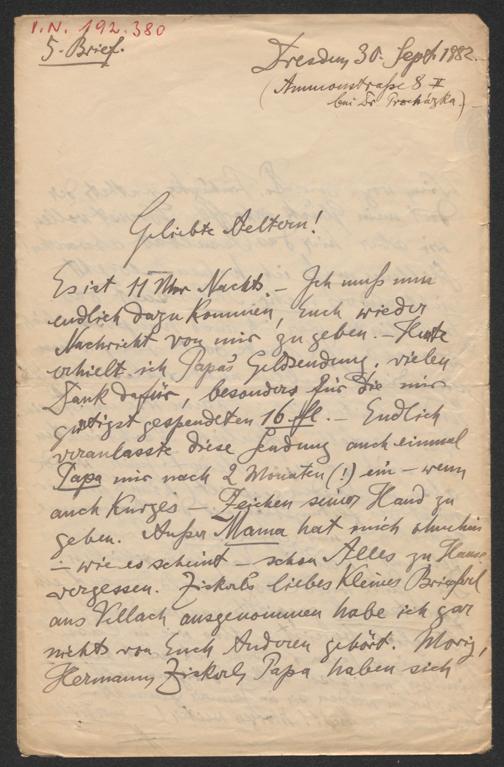 I.N. 192.380
5. Brief.
Dresden 30. Sept. 1882.
(Ammonstraße 8 II
bei Dr Procházka.)
Geliebte Aeltern!
Es ist 11 Uhr Nachts. – Ich muß nun
endlich dazu kommen, Euch wieder
Nachricht von mir zu geben. – Heute
erhielt ich Papa's Geldsendung, vielen
Dank dafür, besonders für die mir
gütigst gespendeten 16 fl. – Endlich
veranlasste diese Sendung auch einmal
Papa mir nach 2 Monaten (!) ein – wenn
auch kurzes – Zeichen seiner Hand zu
geben. Außer Mama hat mich ohnehin
– wie es scheint – schon Alles zu Hause
vergessen. Zickerl's liebes kleines Brieferl
aus Villach ausgenommen habe ich gar
nichts von Euch Anderen gehört. Moriz,
Hermann, Zickerl, Papa haben sich